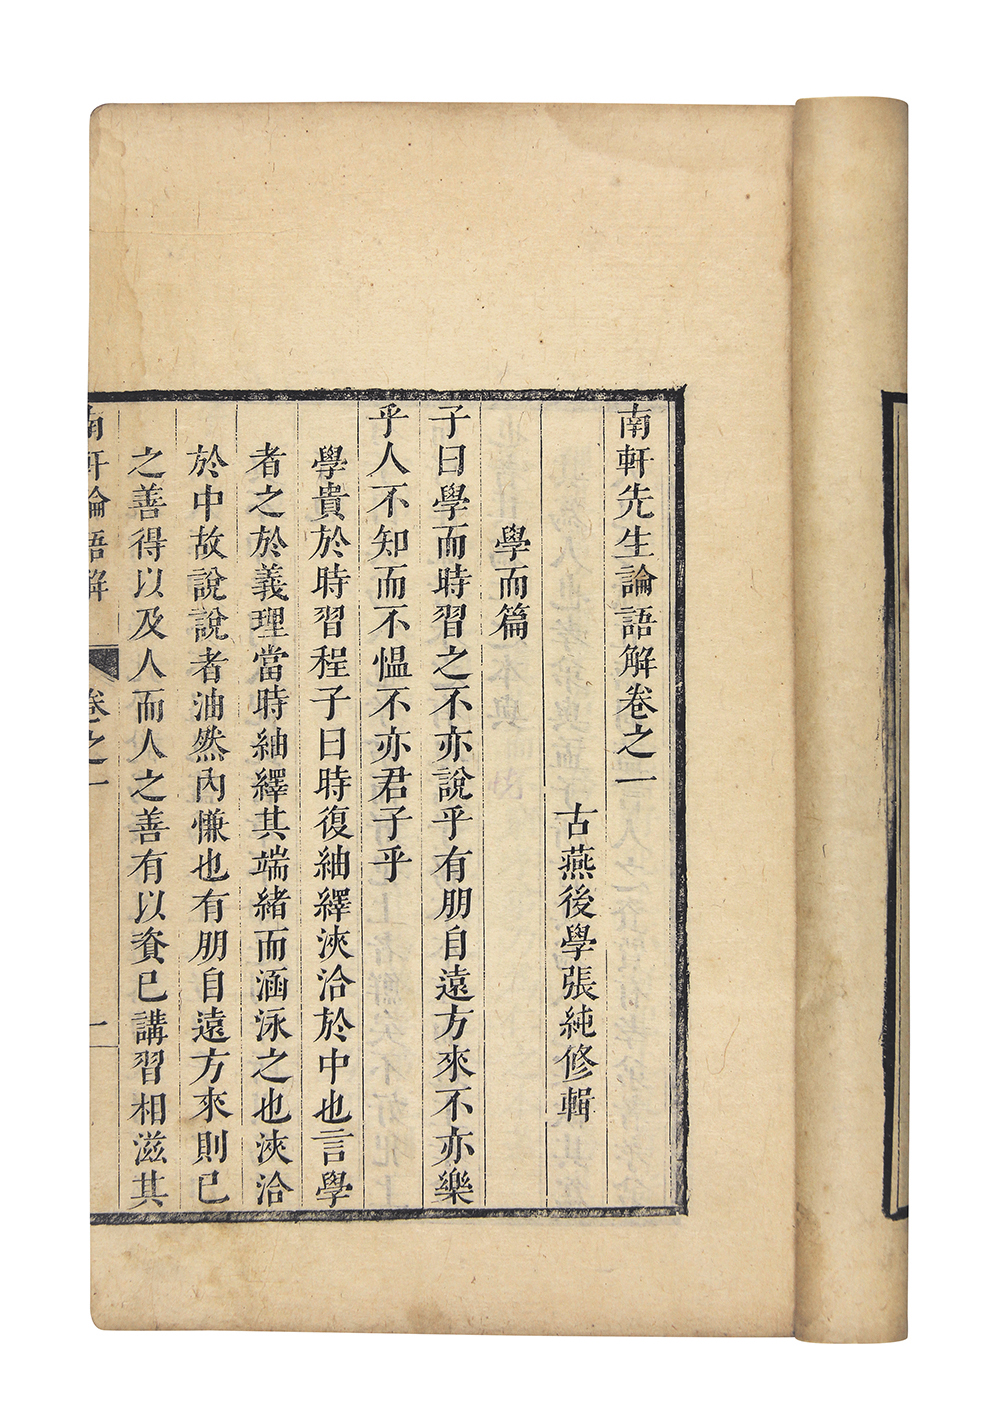 南軒先生論語解卷之一
古燕後學張純修輯
學而篇
子曰學而時習之不亦說乎有朋自遠方來不亦樂
乎人不知而不慍不亦君子乎
學貴於時習程子曰時復紬繹浹洽於中也言學
者之於義理當時紬繹其端緒而涵泳之也浹洽
於中故說說者油然內慊也有朋自遠方來則已
之善得以及人而人之善有以資已講習相滋其
南軒論語解 卷之一 一